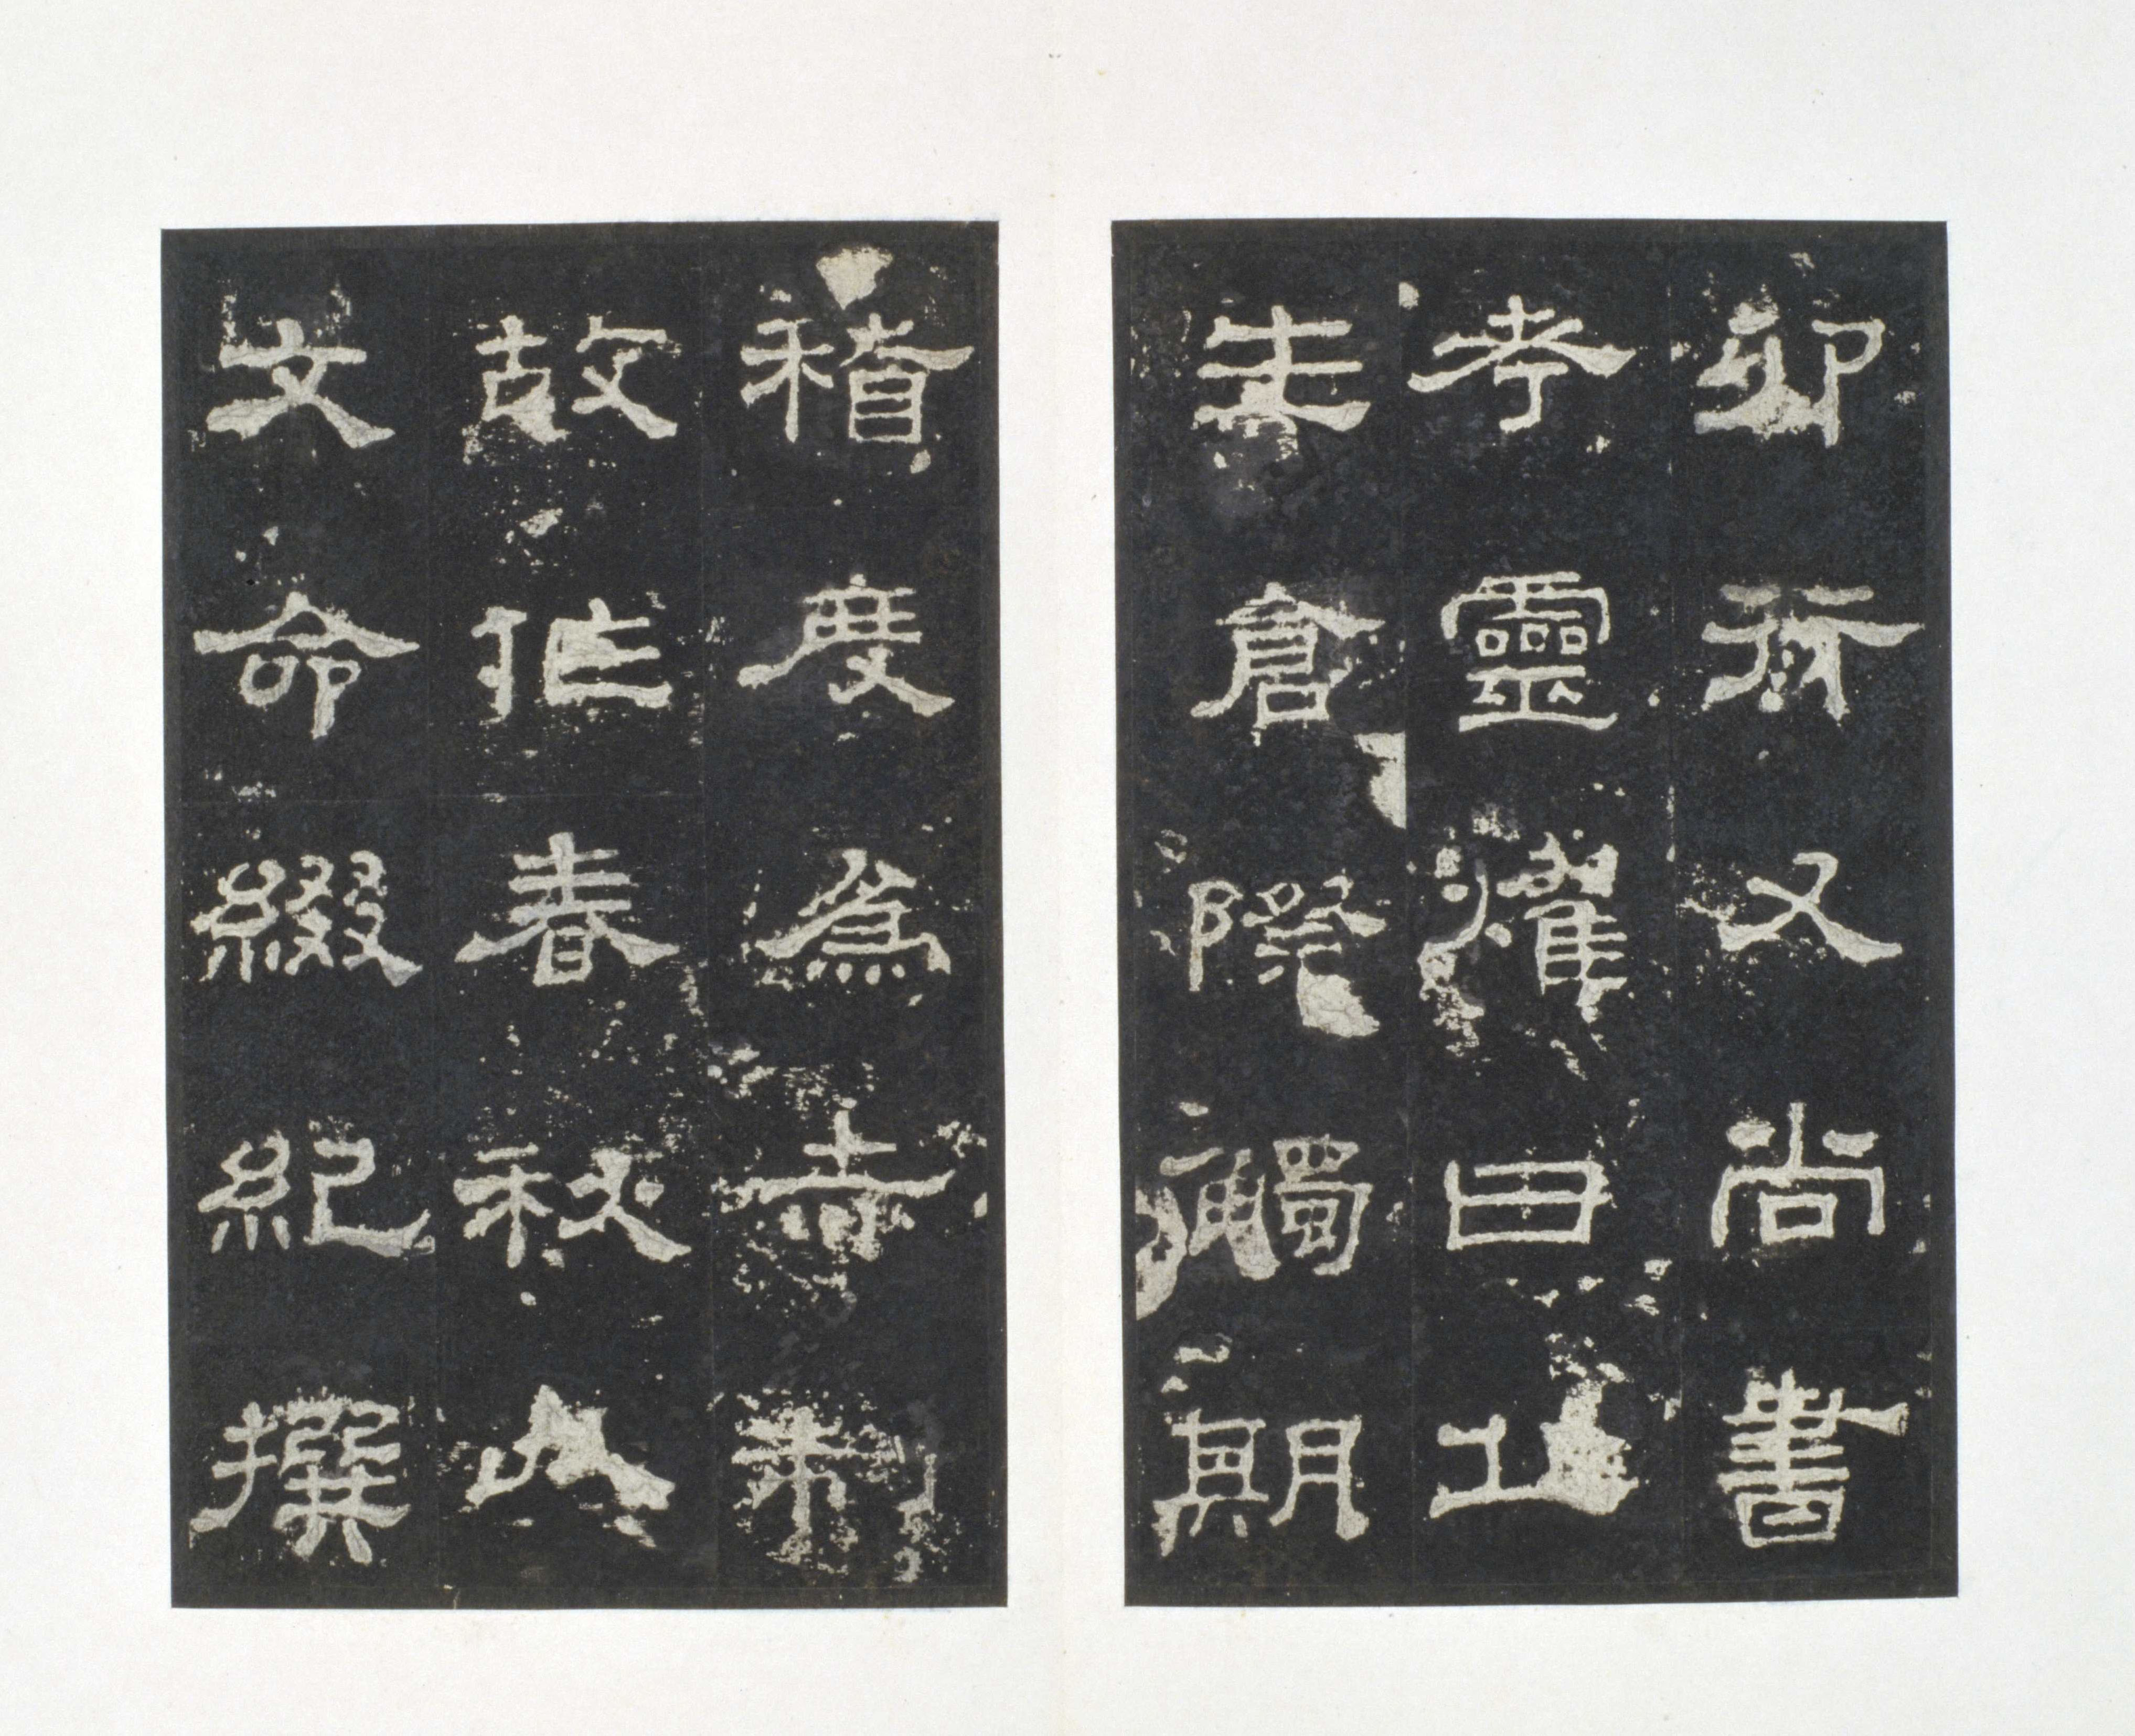 卯行又尚書
考靈燿曰丘
生倉際觸期
稽度為赤制
故作春秋以
文命綴紀撰